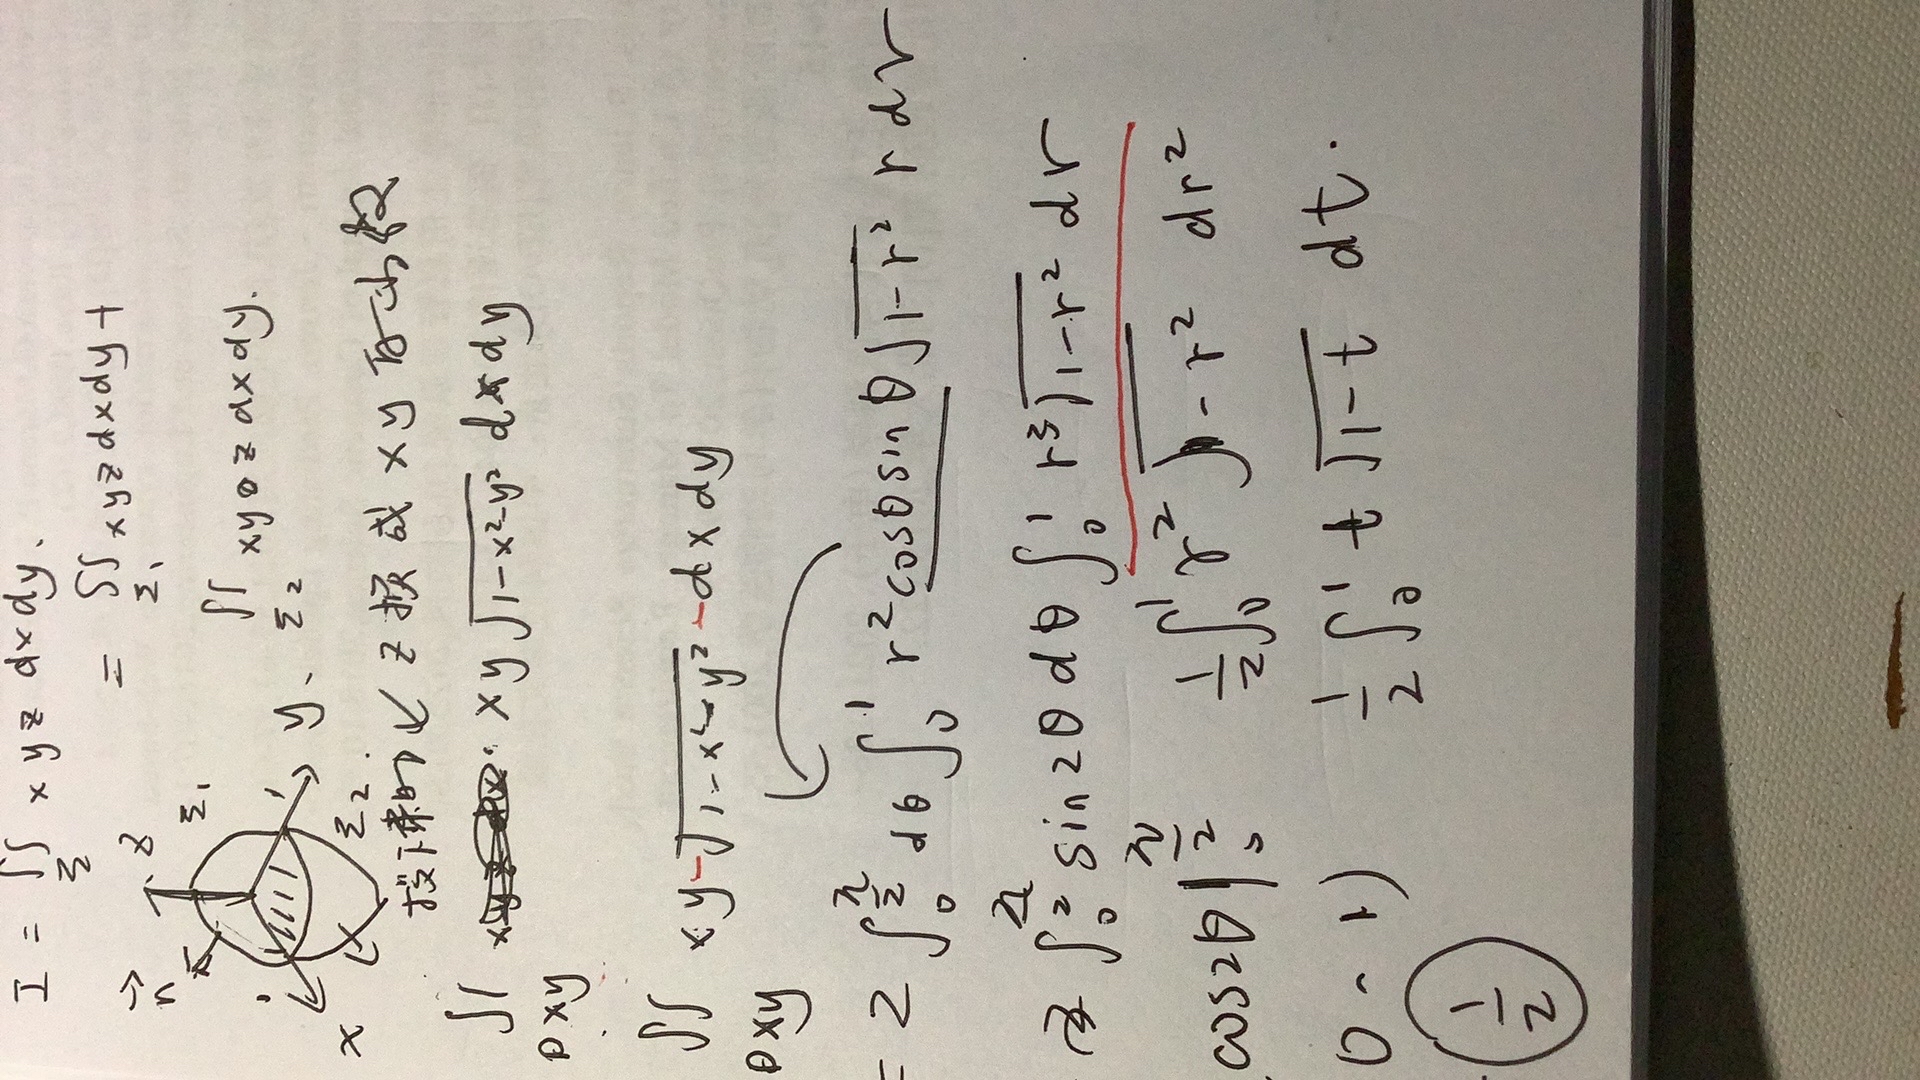 I = ∬Σ xyz dxdy.
= ∬Σ₁ xyz dxdy +
∬Σ₂ xyz dxdy.
n z Σ₁
x y. Σ₂
接下来的 z 换成 xy 有的
∬Dxy xy√1-x²-y² dxdy
∬Dxy xy-√1-x²-y² -dxdy
= 2 ∫₀^π/2 dθ ∫₀¹ r²cosθsinθ√1-r² r dr
∫₀^π/2 sin2θ dθ ∫₀¹ r³√1-r² dr
cos2θ |₀^π/2 1/2 ∫₀¹ r² √1-r² dr²
0-1) 1/2 ∫₀¹ t√1-t dt.
1/2